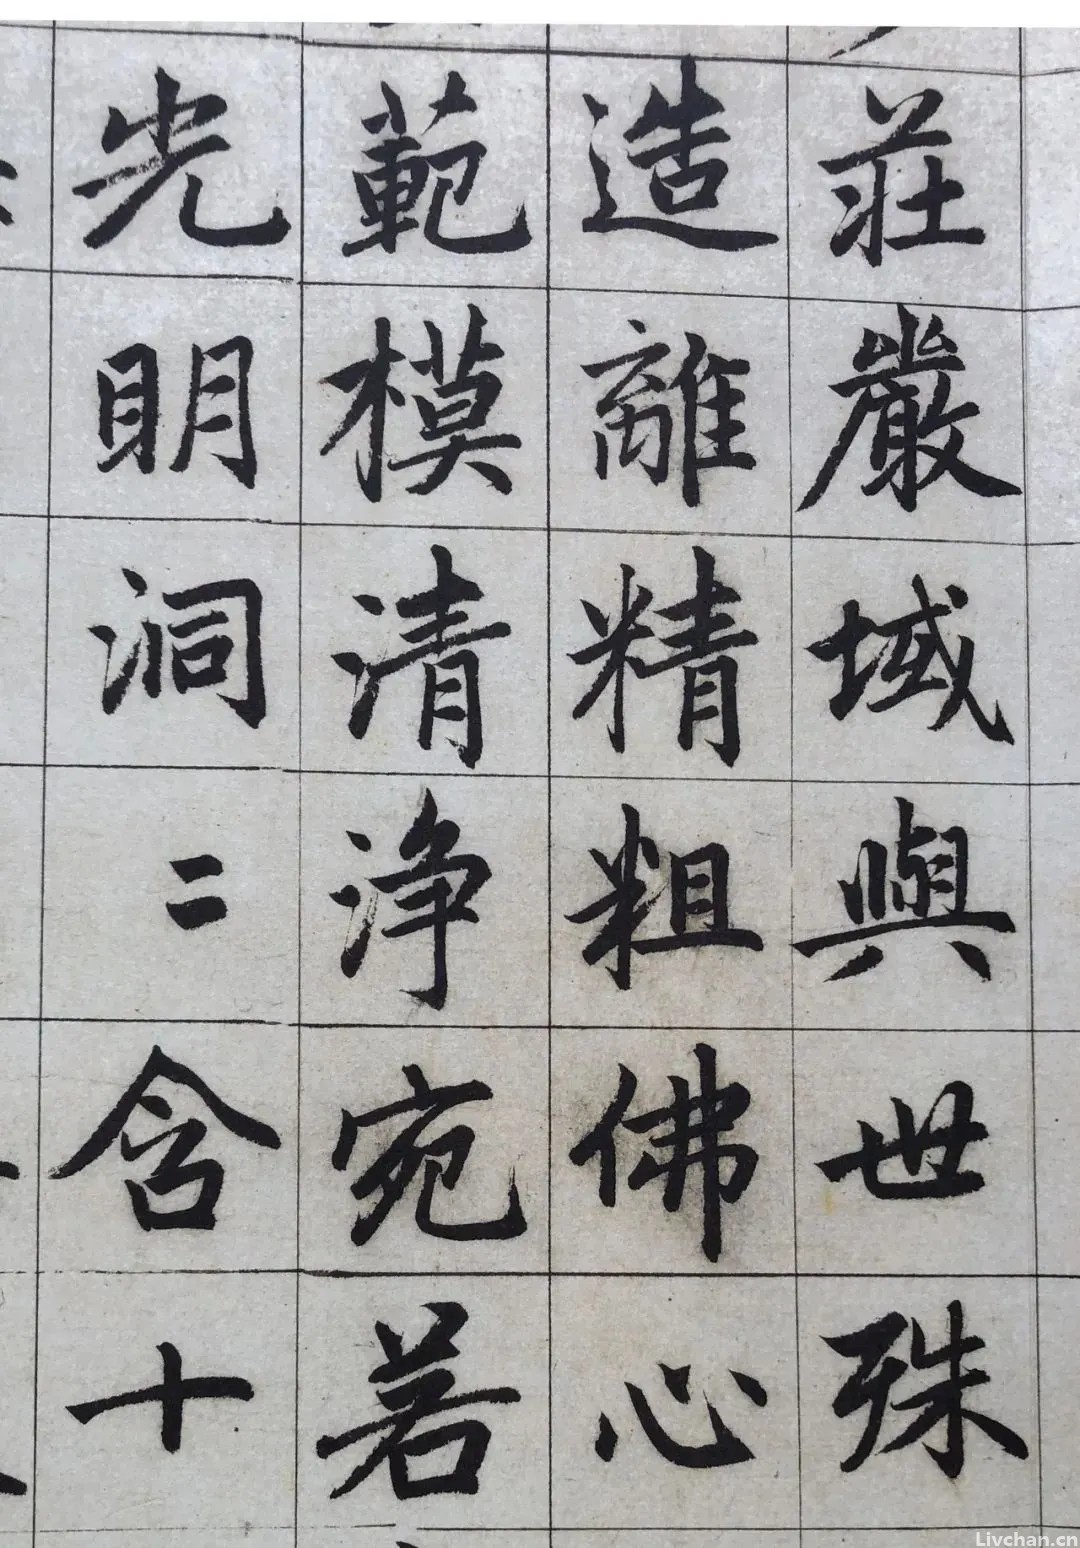 莊嚴域與世殊
造離精粗佛心
範模清浄宛若
光明洞二含十
Livchan.cn